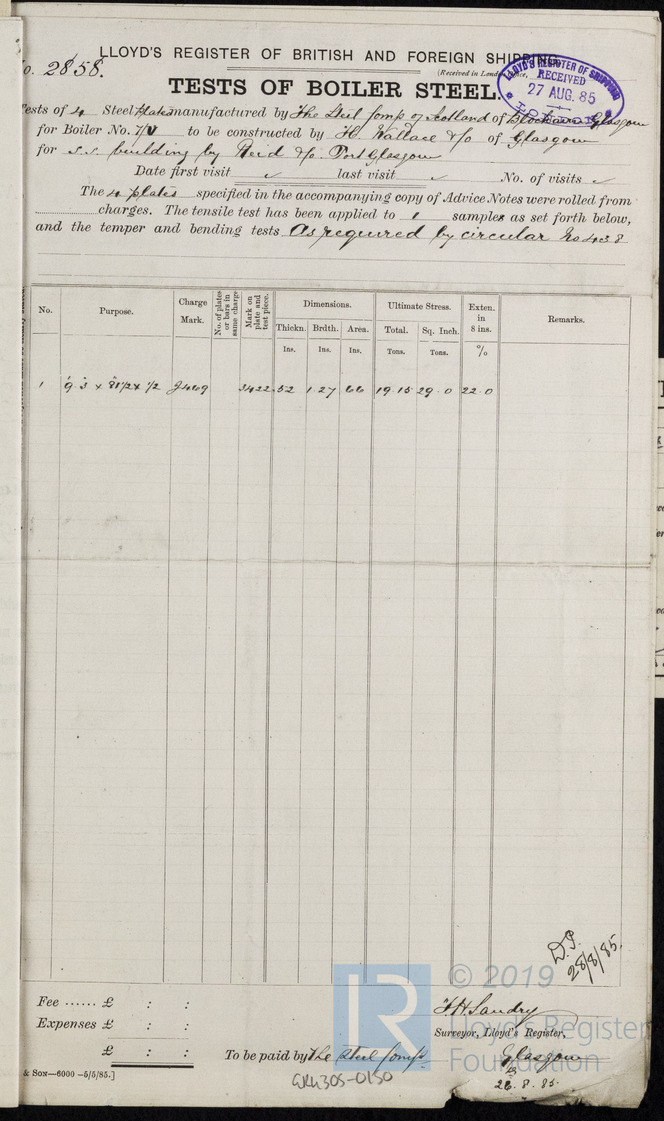 No. 2858.
LLOYD'S REGISTER OF BRITISH AND FOREIGN SHIPPING.
(Received in London Office,
LLOYD'S REGISTER OF SHIPPING
RECEIVED
27 AUG. 85
LONDON
TESTS OF BOILER STEEL.
Tests of 4 Steel Plates manufactured by The Steel Compy of Scotland of Blochairn Glasgow
for Boiler No. to be constructed by H. Wallace & Co of Glasgow
for s.s. building by Reid & Co. Port Glasgow
Date first visit ✓ last visit ✓ No. of visits ✓
The 4 plates specified in the accompanying copy of Advice Notes were rolled from
charges. The tensile test has been applied to 1 samples as set forth below,
and the temper and bending tests As required by circular No 438
No. Purpose. Charge Mark. No. of plates or bars in same charge Mark on plate and test piece. Dimensions. Ultimate Stress. Exten. in 8 ins. Remarks.
Thickn. Brdth. Area. Total. Sq. Inch.
Ins. Ins. Ins. Tons. Tons. %
1 9'3 x 81 1/2 x 1/2 3422 .52 1.27 66 19.15 29.0 22.0
D.P.
28/8/85.
© 2019
LR
Lloyd's Register
Foundation
Fee ...... £ : :
Expenses £ : :
£ : :
To be paid by The Steel Compy
Surveyor, Lloyd's Register,
Glasgow
26.8.85.
& SON—6000—5/5/85.]